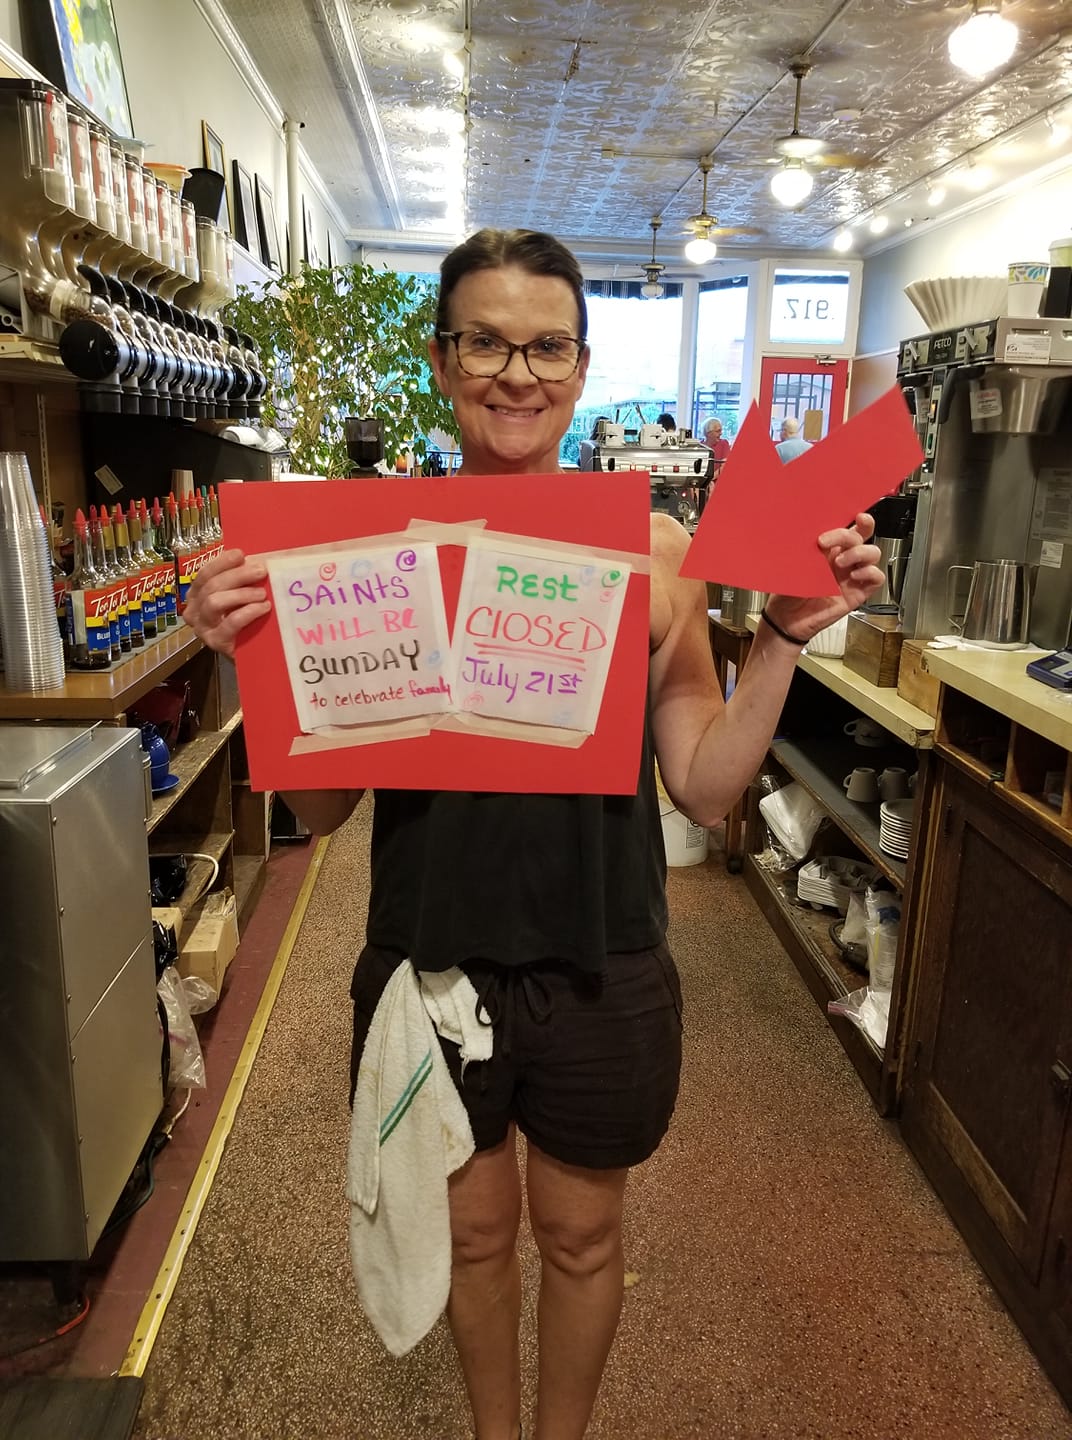 SAINTS
WILL BE
SUNDAY
to celebrate family
REST
CLOSED
July 21st
917
FETCO